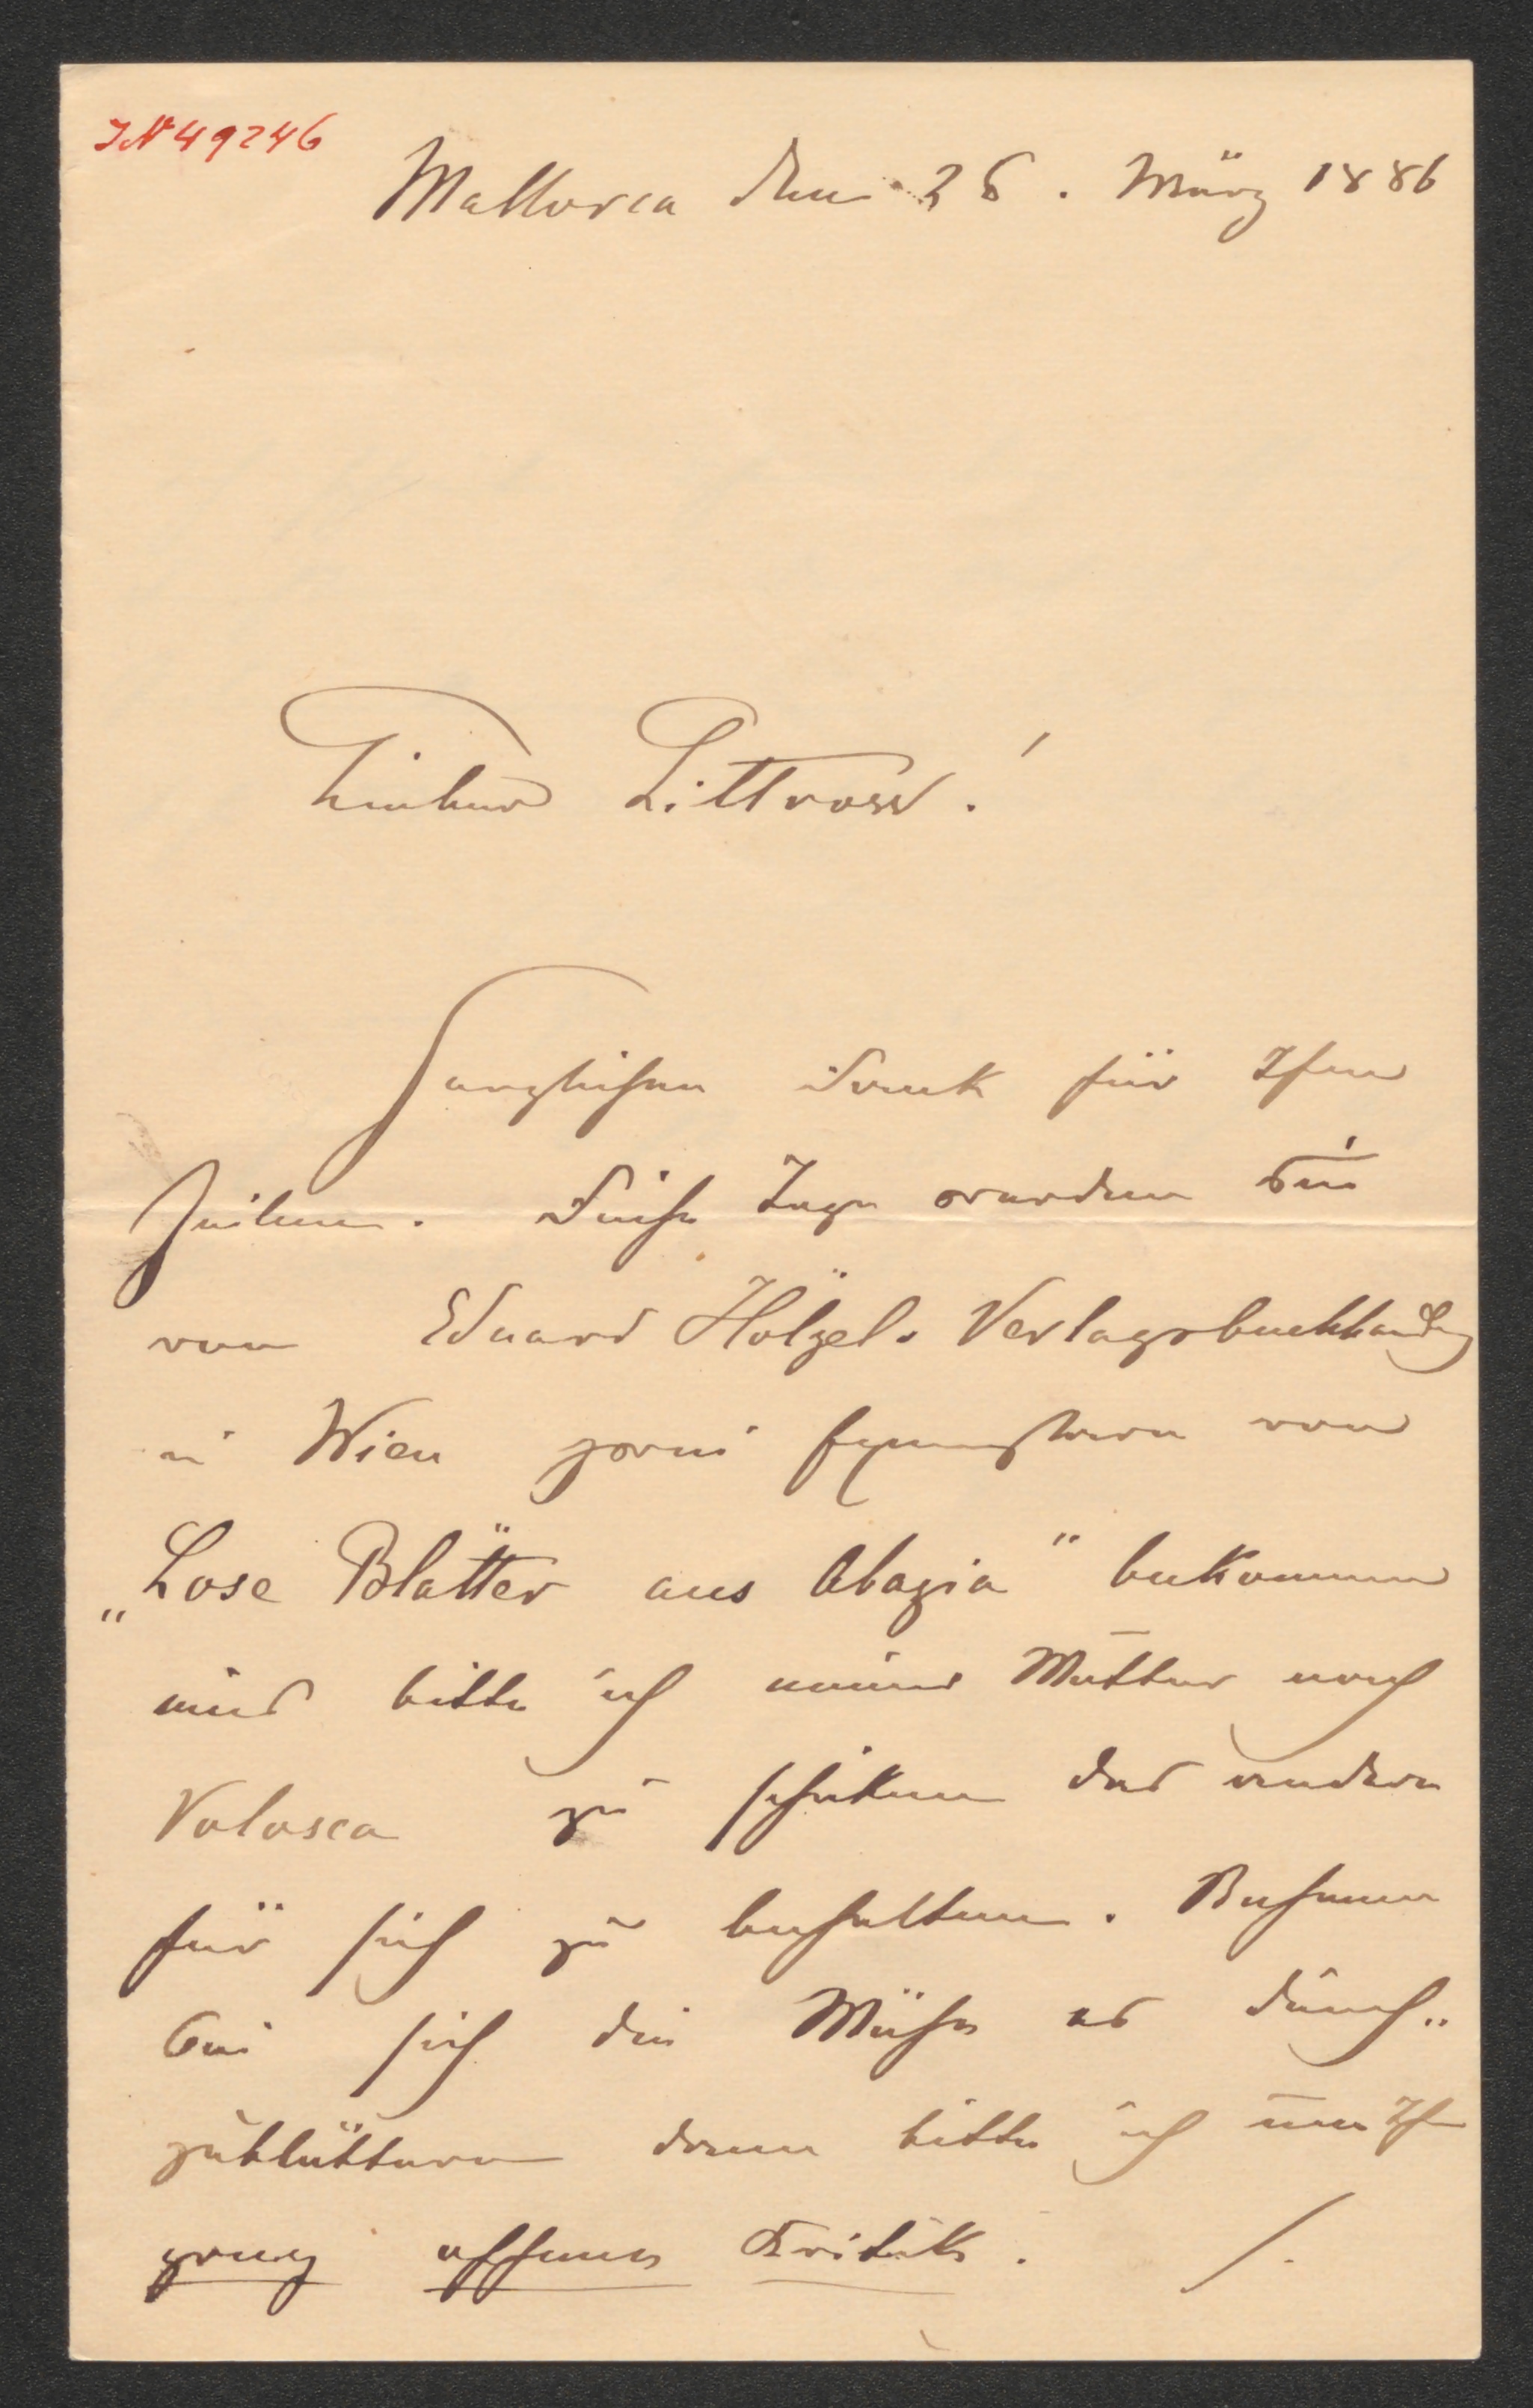 IN 49246
Mallorca den 28. März 1886
Lieber Littrow!
Herzlichen Dank für Ihre
Zeilen. Diese Tage werden Sie
von Eduard Hölzels Verlagsbuchhandlg
in Wien zwei Exemplare von
„Lose Blätter aus Abazia" bekommen
eines bitte ich meiner Mutter nach
Volosca zu schiken das andere
für sich zu behalten. Nehmen
Sie sich die Mühe es durch„
zublättern dann bitte ich um Ihre
ganz offene Kritik. /.